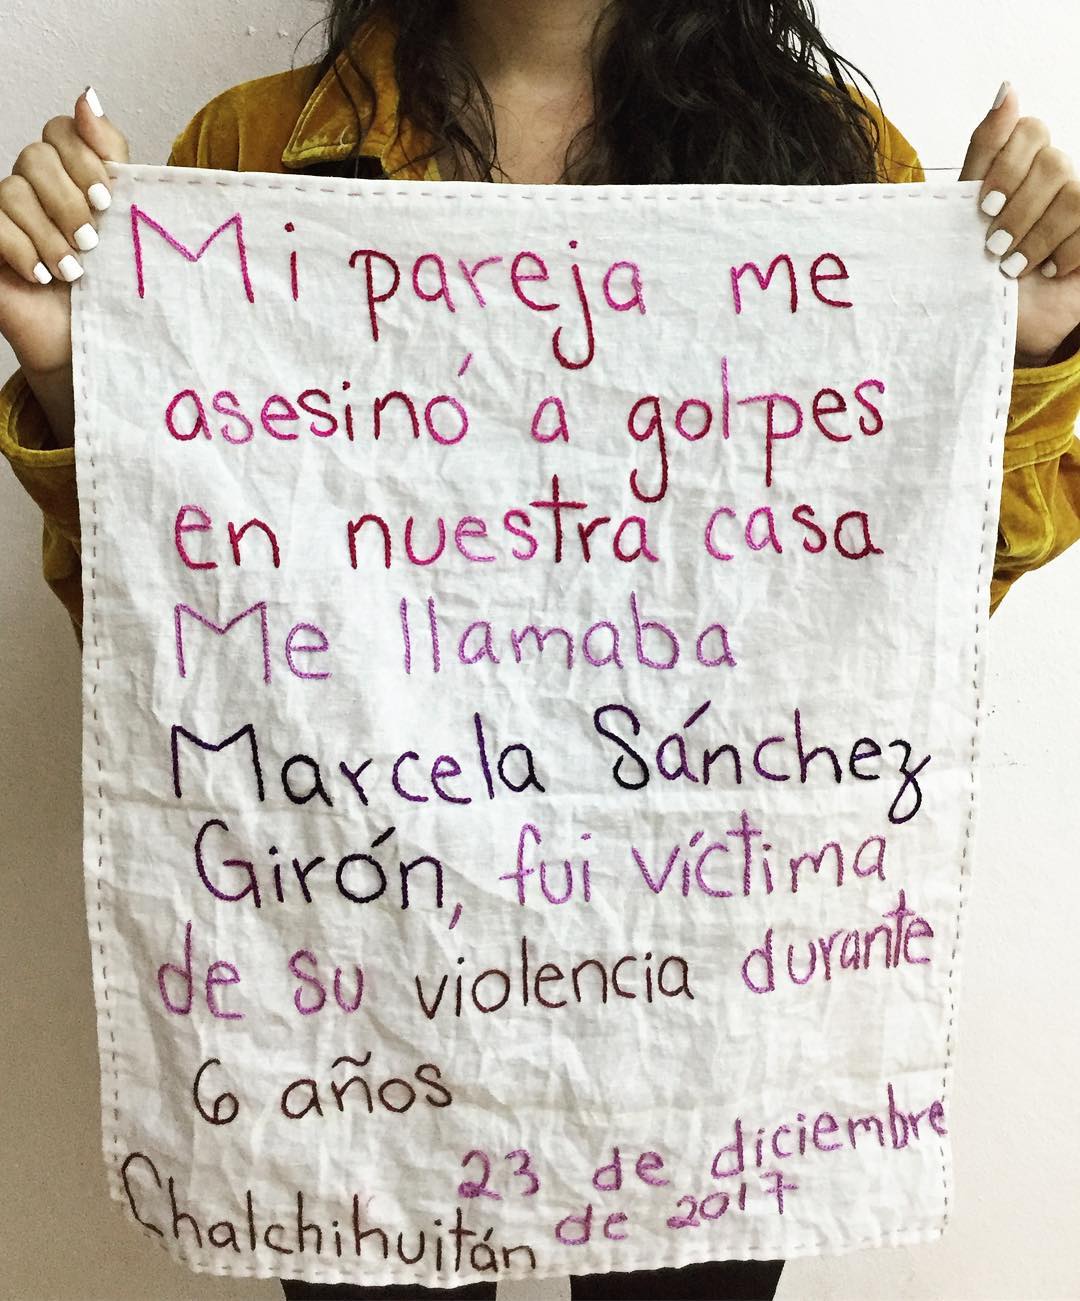 Mi pareja me
asesinó a golpes
en nuestra casa
Me llamaba
Marcela Sánchez
Girón, fui víctima
de su violencia durante
6 años
23 de diciembre
de 2017
Chalchihuitán